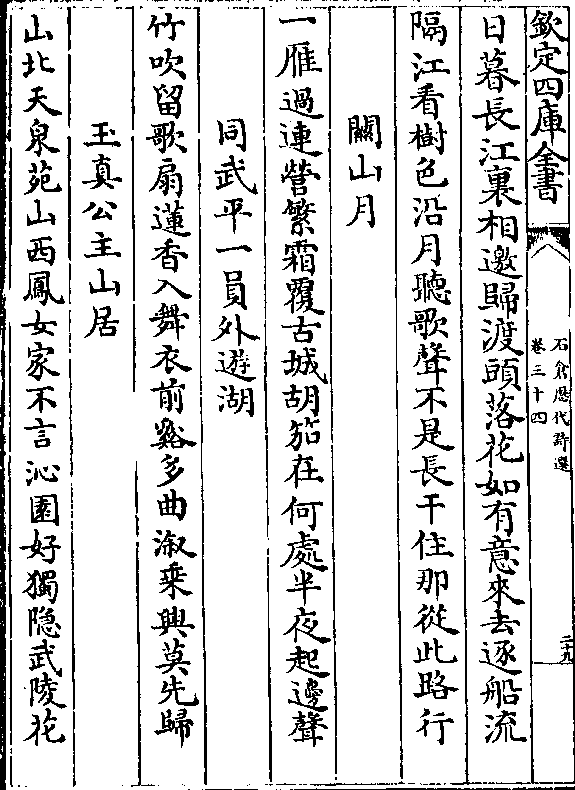 欽定四庫全書
石倉歷代詩選
卷三十四
二十九
日暮長江裏相邀歸渡頭落花如有意來去逐船流
隔江看樹色沿月聽歌聲不是長干住那從此路行
關山月
一雁過連營繁霜覆古城胡笳在何處半夜起邊聲
同武平一員外遊湖
竹吹留歌扇蓮香入舞衣前谿多曲溆乗興莫先歸
玉真公主山居
山北天泉苑山西鳳女家不言沁園好獨隐武陵花